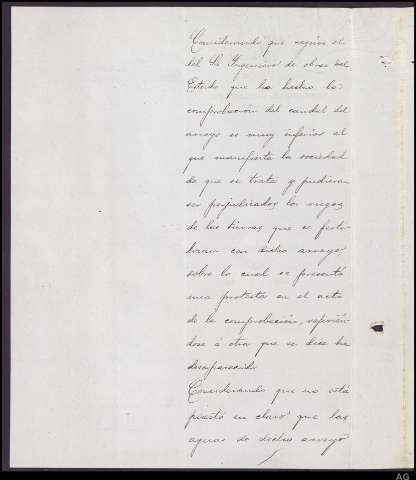 Considerando que según el
del Sr Yngeniero de obras del
Estado que ha hecho la
comprobación del caudal del
arroyo es muy inferior al
que manifiesta la sociedad
de que se trata y pudieran
ser perjudicados los riegos
de las tierras que se ferti-
lizan con dicho arroyo,
sobre lo cual se presentó
una protesta en el acto
de la comprobación, refirién-
dose á otra que se dice ha
desaparecido
Considerando que no está
puesto en claro que las
aguas de dicho arroyo
AG